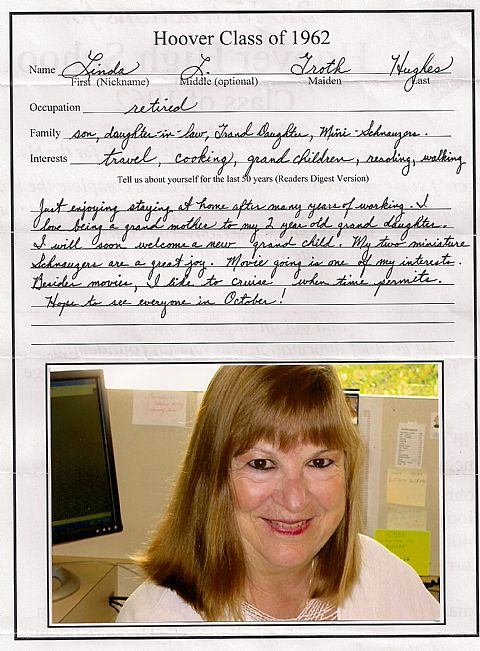 Hoover Class of 1962
Name Linda L. Groth Hughes
First (Nickname) Middle (optional) Maiden Last
Occupation retired
Family son, daughter-in-law, Grand Daughter, Mini-Schnauzers.
Interests travel, cooking, grand children, reading, walking
Tell us about yourself for the last 50 years (Readers Digest Version)
Just enjoying staying at home after many years of working. I
love being a grand mother to my 2 year old grand daughter.
I will soon welcome a new grand child. My two miniature
Schnauzers are a great joy. Movie going is one of my interests.
Besides movies, I like to cruise when time permits.
Hope to see everyone in October!